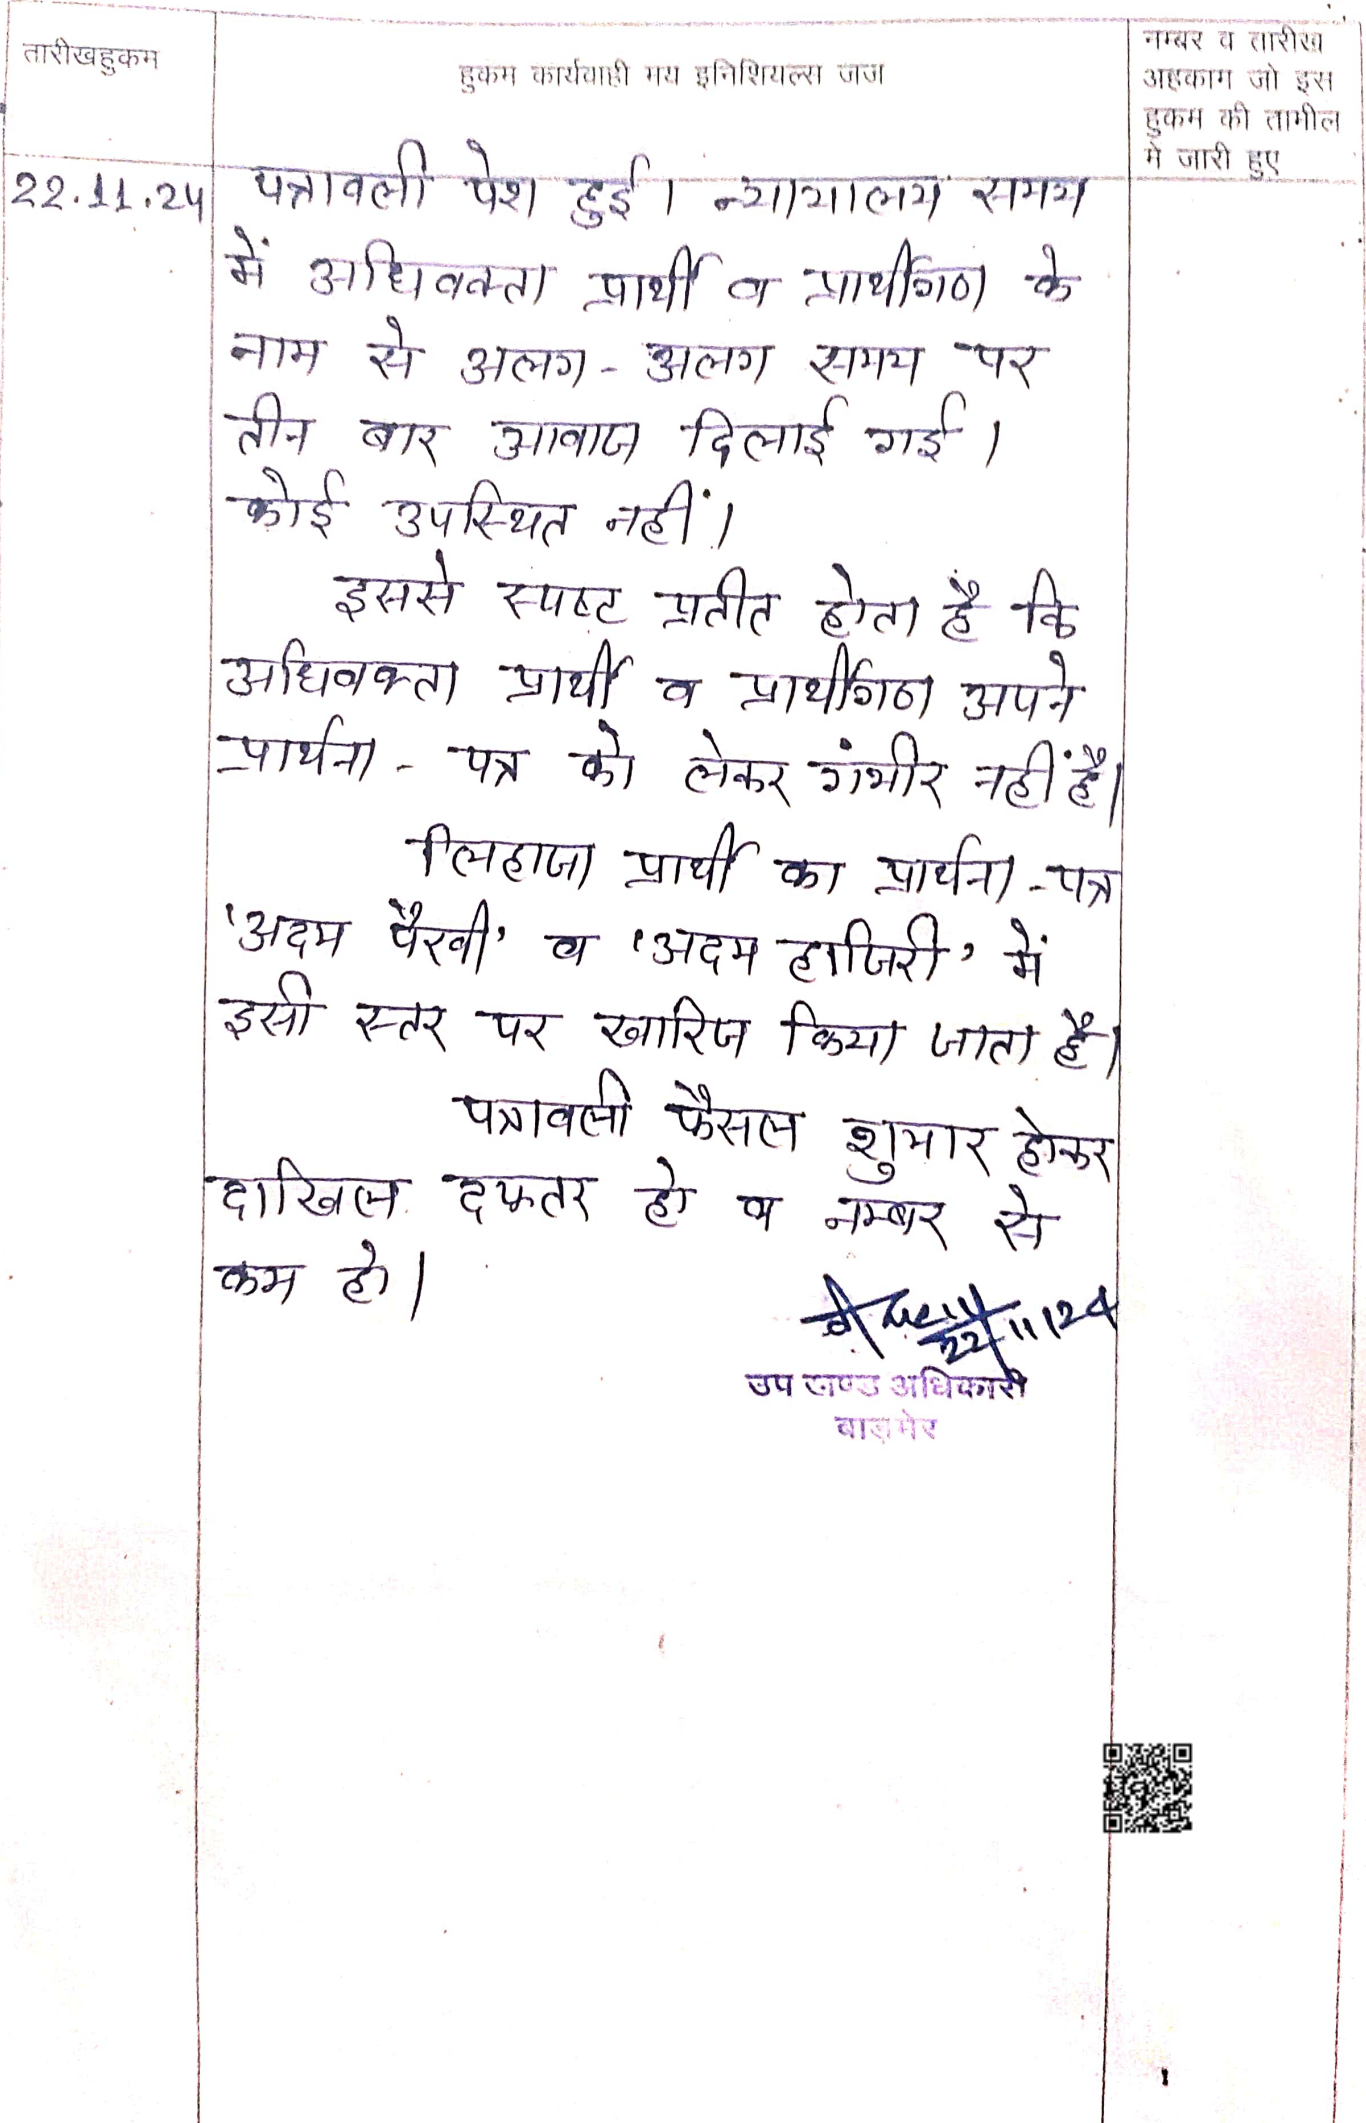 तारीखहुकम
हुकम कार्यवाही मय इनिशियल्स जज
नम्बर व तारीख
अहकाम जो इस
हुकम की तामील
मे जारी हुए
22.11.24
पत्रावली पेश हुई। न्यायालय समय
में अधिवक्ता प्रार्थी व प्रार्थीगण के
नाम से अलग-अलग समय पर
तीन बार आवाज दिलाई गई।
कोई उपस्थित नहीं।
इससे स्पष्ट प्रतीत होता है कि
अधिवक्ता प्रार्थी व प्रार्थीगण अपने
प्रार्थना-पत्र को लेकर गंभीर नहीं है।
लिहाजा प्रार्थी का प्रार्थना-पत्र
'अदम पैरवी' व 'अदम हाजिरी' में
इसी स्तर पर खारिज किया जाता है।
पत्रावली फैसल शुमार होकर
दाखिल दफ्तर हो व नम्बर से
कम हो।
22/11/24
उप खण्ड अधिकारी
बाड़मेर